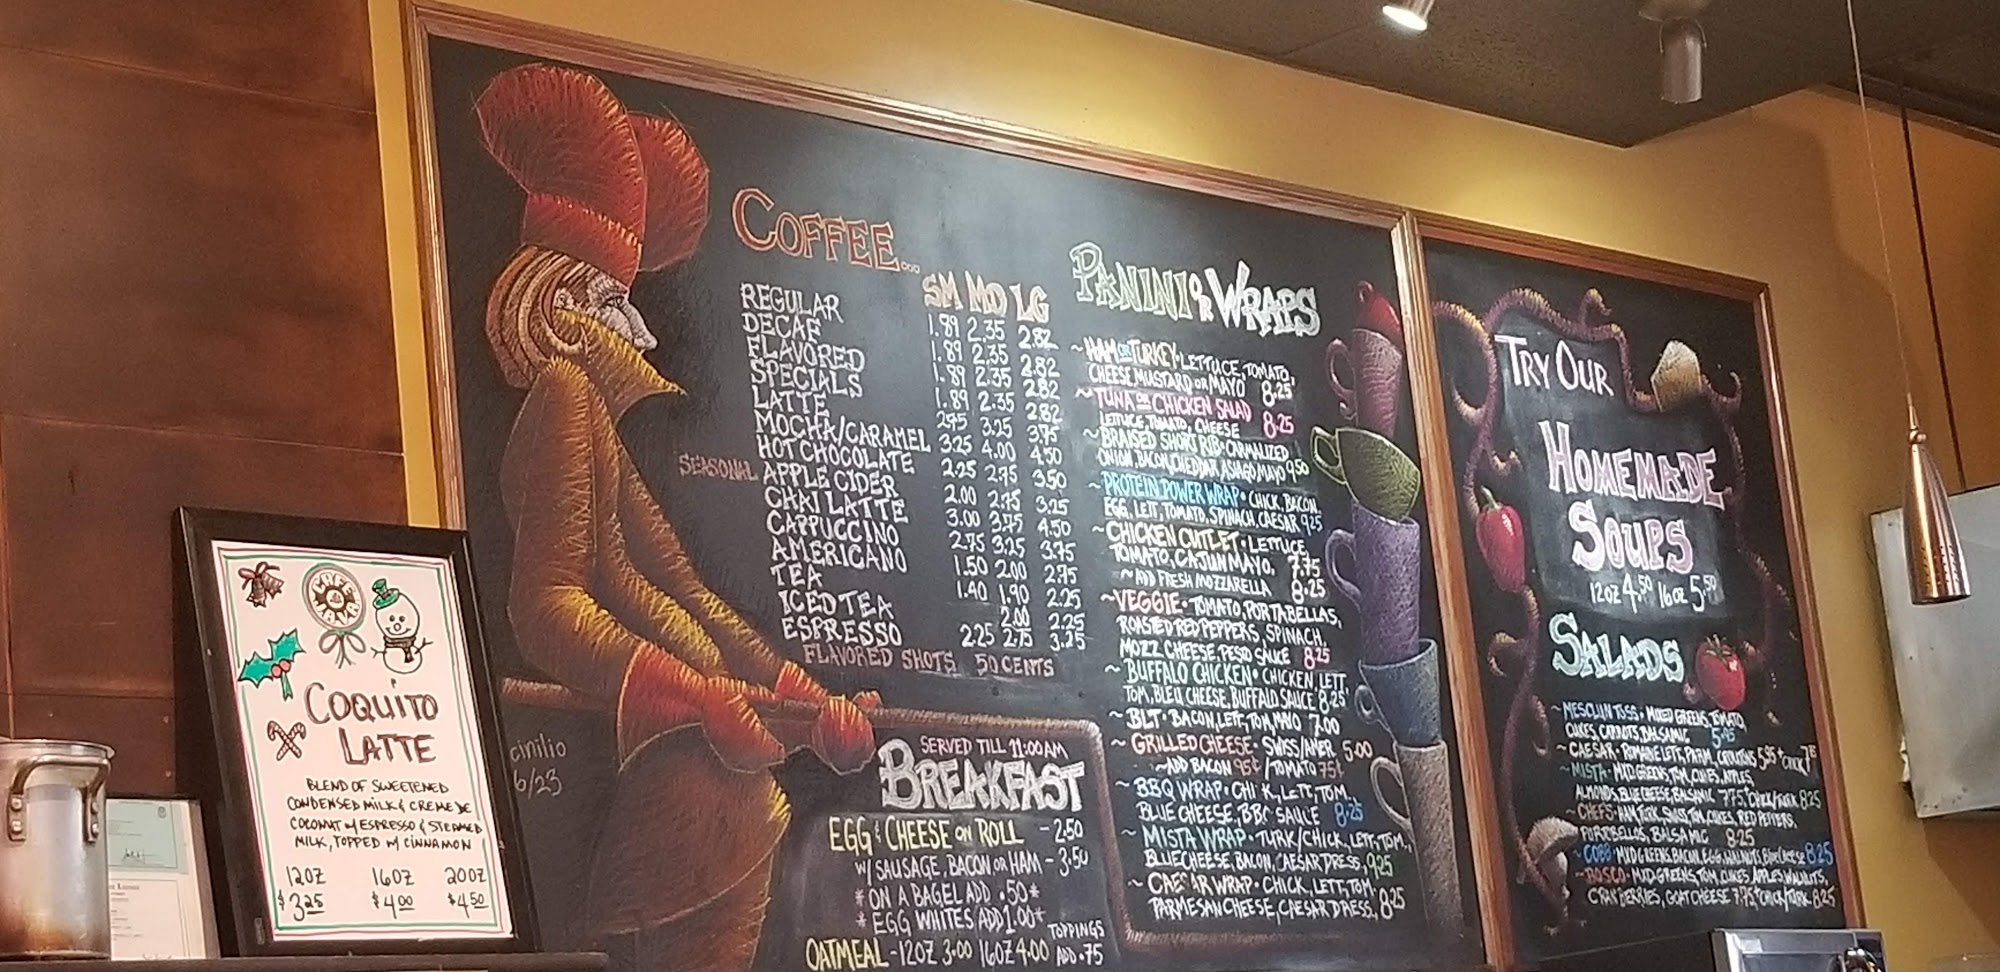 COFFEE...
SM MD LG
REGULAR 1.89 2.35 2.82
DECAF 1.89 2.35 2.82
FLAVORED 1.89 2.35 2.82
SPECIALS 1.89 2.35 2.82
LATTE 2.75 3.25 3.75
MOCHA/CARAMEL 3.25 4.00 4.50
HOT CHOCOLATE 2.25 2.75 3.50
SEASONAL APPLE CIDER 2.00 2.75 3.25
CHAI LATTE 3.00 3.75 4.50
CAPPUCCINO 2.75 3.25 3.75
AMERICANO 1.50 2.00 2.75
TEA 1.40 1.90 2.25
ICED TEA 2.00 2.25
ESPRESSO 2.25 2.75 3.25
FLAVORED SHOTS 50 CENTS
cinilio
6/23
SERVED TILL 11:00AM
BREAKFAST
EGG & CHEESE ON ROLL - 2.50
W/ SAUSAGE, BACON OR HAM - 3.50
* ON A BAGEL ADD .50 *
* EGG WHITES ADD 1.00 *
OATMEAL - 12OZ 3.00 16OZ 4.00
TOPPINGS
ADD .75
PANINI OR WRAPS
~ HAM OR TURKEY · LETTUCE, TOMATO,
CHEESE, MUSTARD OR MAYO 8.25
~ TUNA OR CHICKEN SALAD
LETTUCE, TOMATO, CHEESE 8.25
~ BRAISED SHORT RIB · CARMALIZED
ONION, BACON, CHEDDAR, ASIAGO MAYO 9.50
~ PROTEIN POWER WRAP · CHICK, BACON,
EGG, LETT, TOMATO, SPINACH, CAESAR 9.25
~ CHICKEN CUTLET · LETTUCE,
TOMATO, CAJUN MAYO, 7.75
~ ADD FRESH MOZZARELLA 8.25
~ VEGGIE · TOMATO, PORTABELLAS,
ROASTED RED PEPPERS, SPINACH,
MOZZ CHEESE, PESTO SAUCE 8.25
~ BUFFALO CHICKEN · CHICKEN, LETT,
TOM, BLEU CHEESE, BUFFALO SAUCE 8.25
~ BLT · BACON, LETT, TOM, MAYO 7.00
~ GRILLED CHEESE · SWISS/AMER 5.00
~ ADD BACON 95¢ / TOMATO 75¢
~ BBQ WRAP · CHICK, LETT, TOM,
BLUE CHEESE, BBQ SAUCE 8.25
~ MISTA WRAP · TURK/CHICK, LETT, TOM,
BLUE CHEESE, BACON, CAESAR DRESS, 9.25
~ CAESAR WRAP · CHICK, LETT, TOM,
PARMESAN CHEESE, CAESAR DRESS, 8.25
TRY OUR
HOMEMADE
SOUPS
12OZ 4.50 16OZ 5.50
SALADS
~ MESCLUN TOSS · MIXED GREENS, TOMATO,
CUKES, CARROTS, BALSAMIC 5.95
~ CAESAR · ROMAINE LETT, PARM, CROUTONS 5.95 + CHICK
~ MISTA · MXD GREENS, TOM, CUKES, APPLES,
ALMONDS, BLUE CHEESE, BALSAMIC 7.75 + CHICK/TURK 8.25
~ CHEFS · HAM, TURK, SWISS, TOM, CUKES, RED PEPPERS,
PORTOBELLOS, BALSAMIC 8.25
~ COBB · MXD GREENS, BACON, EGG, WALNUTS, Blue Cheese 8.25
~ BOSCO · MXD GREENS, TOM, CUKES, APPLES, WALNUTS,
CRANBERRIES, GOAT CHEESE 7.75 + CHICK/TURK 8.25
COQUITO
LATTE
BLEND OF SWEETENED
CONDENSED MILK & CREME DE
COCONUT W/ ESPRESSO & STEAMED
MILK, TOPPED W/ CINNAMON
12OZ 16OZ 20OZ
$3.25 $4.00 $4.50